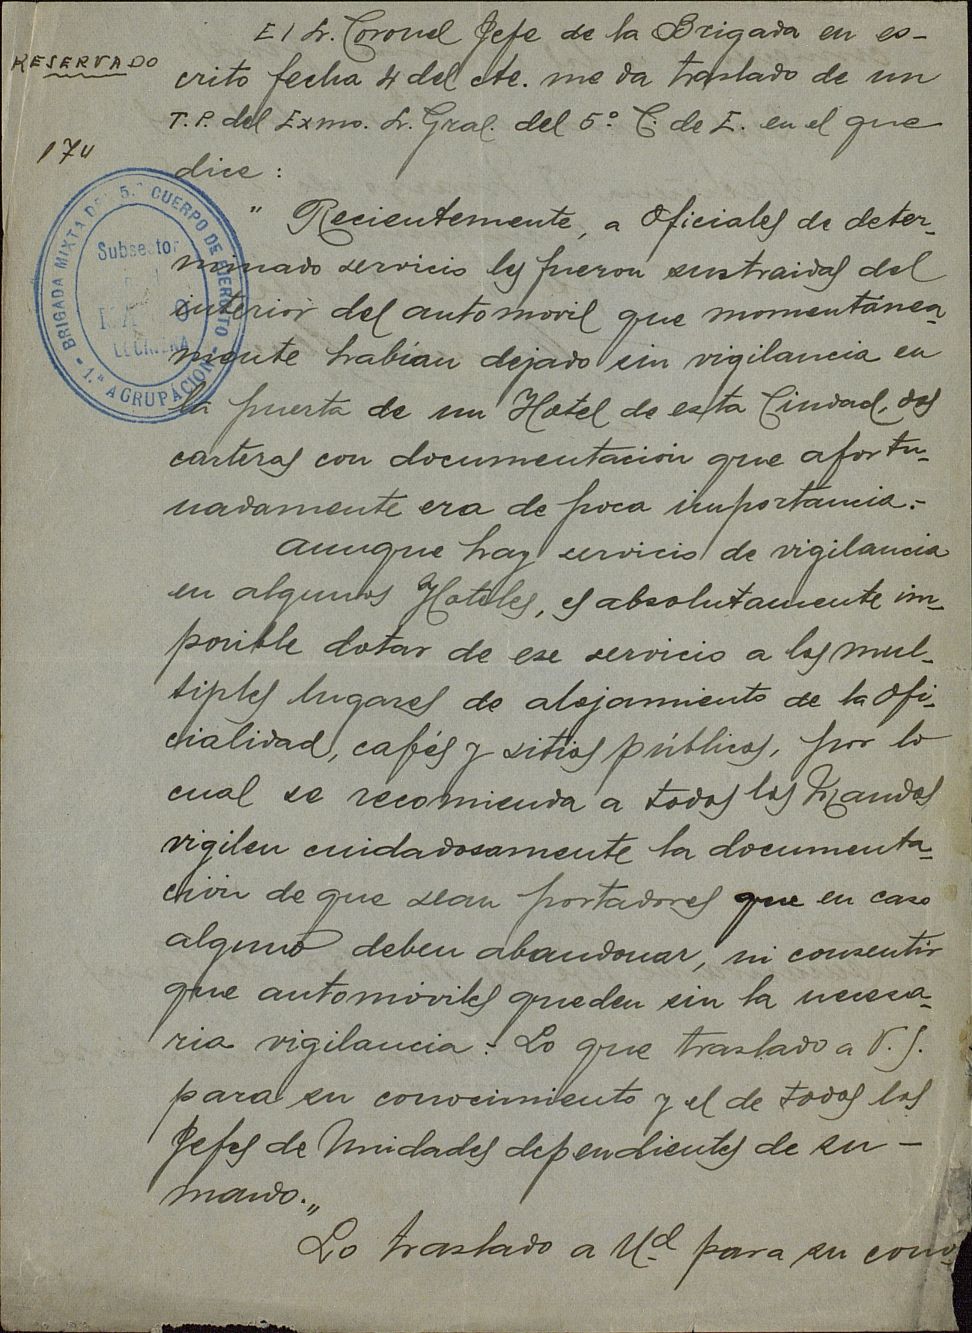 El Sr. Coronel Jefe de la Brigada en es-
RESERVADO
crito fecha 4 del cte. me da traslado de un
T.P. del Exmo. Sr. Gral. del 5º C. de E. en el que
174
dice :
BRIGADA MIXTA DEL 5.º CUERPO DE EJERCITO
Subsector
LECIÑENA
- 1.ª AGRUPACION -
" Recientemente, a Oficiales de deter-
minado servicio les fueron sustraidas del
interior del automovil que momentánea-
mente habían dejado sin vigilancia en
la puerta de un Hotel de esta Ciudad, dos
carteras con documentación que afortu-
nadamente era de poca importancia.-
Aunque hay servicio de vigilancia
en algunos Hoteles, es absolutamente im-
posible dotar de ese servicio a los mul-
tiples lugares de alojamiento de la Ofi-
cialidad, cafés y sitios públicos, por lo
cual se recomienda a todos los Mandos
vigilen cuidadosamente la documenta-
ción de que sean portadores que en caso
alguno deben abandonar, ni consentir
que automóviles queden sin la necesa-
ria vigilancia.- Lo que traslado a V.S.
para su conocimiento y el de todos los
Jefes de Unidades dependientes de su -
mando."
Lo traslado a Ud para su cono-